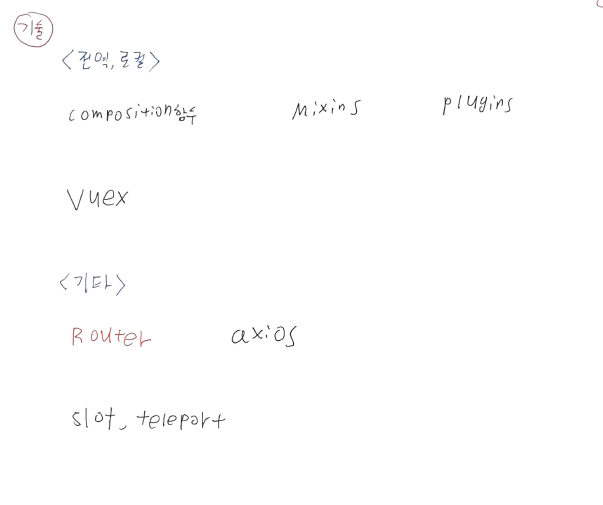 기술
<전역,로컬>
composition함수 Mixins plugins
Vuex
<기타>
Router axios
slot, teleport